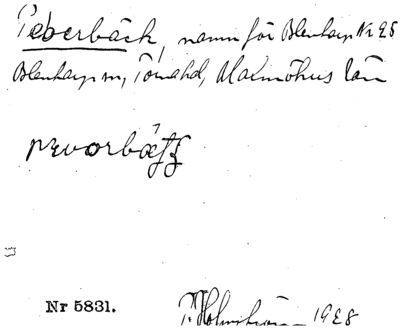 Peberbäck, namn för Blentarp Nr 25
Blentarp sn, Torna hd, Malmöhus län
Nr 5831.
P. Holmström 1928